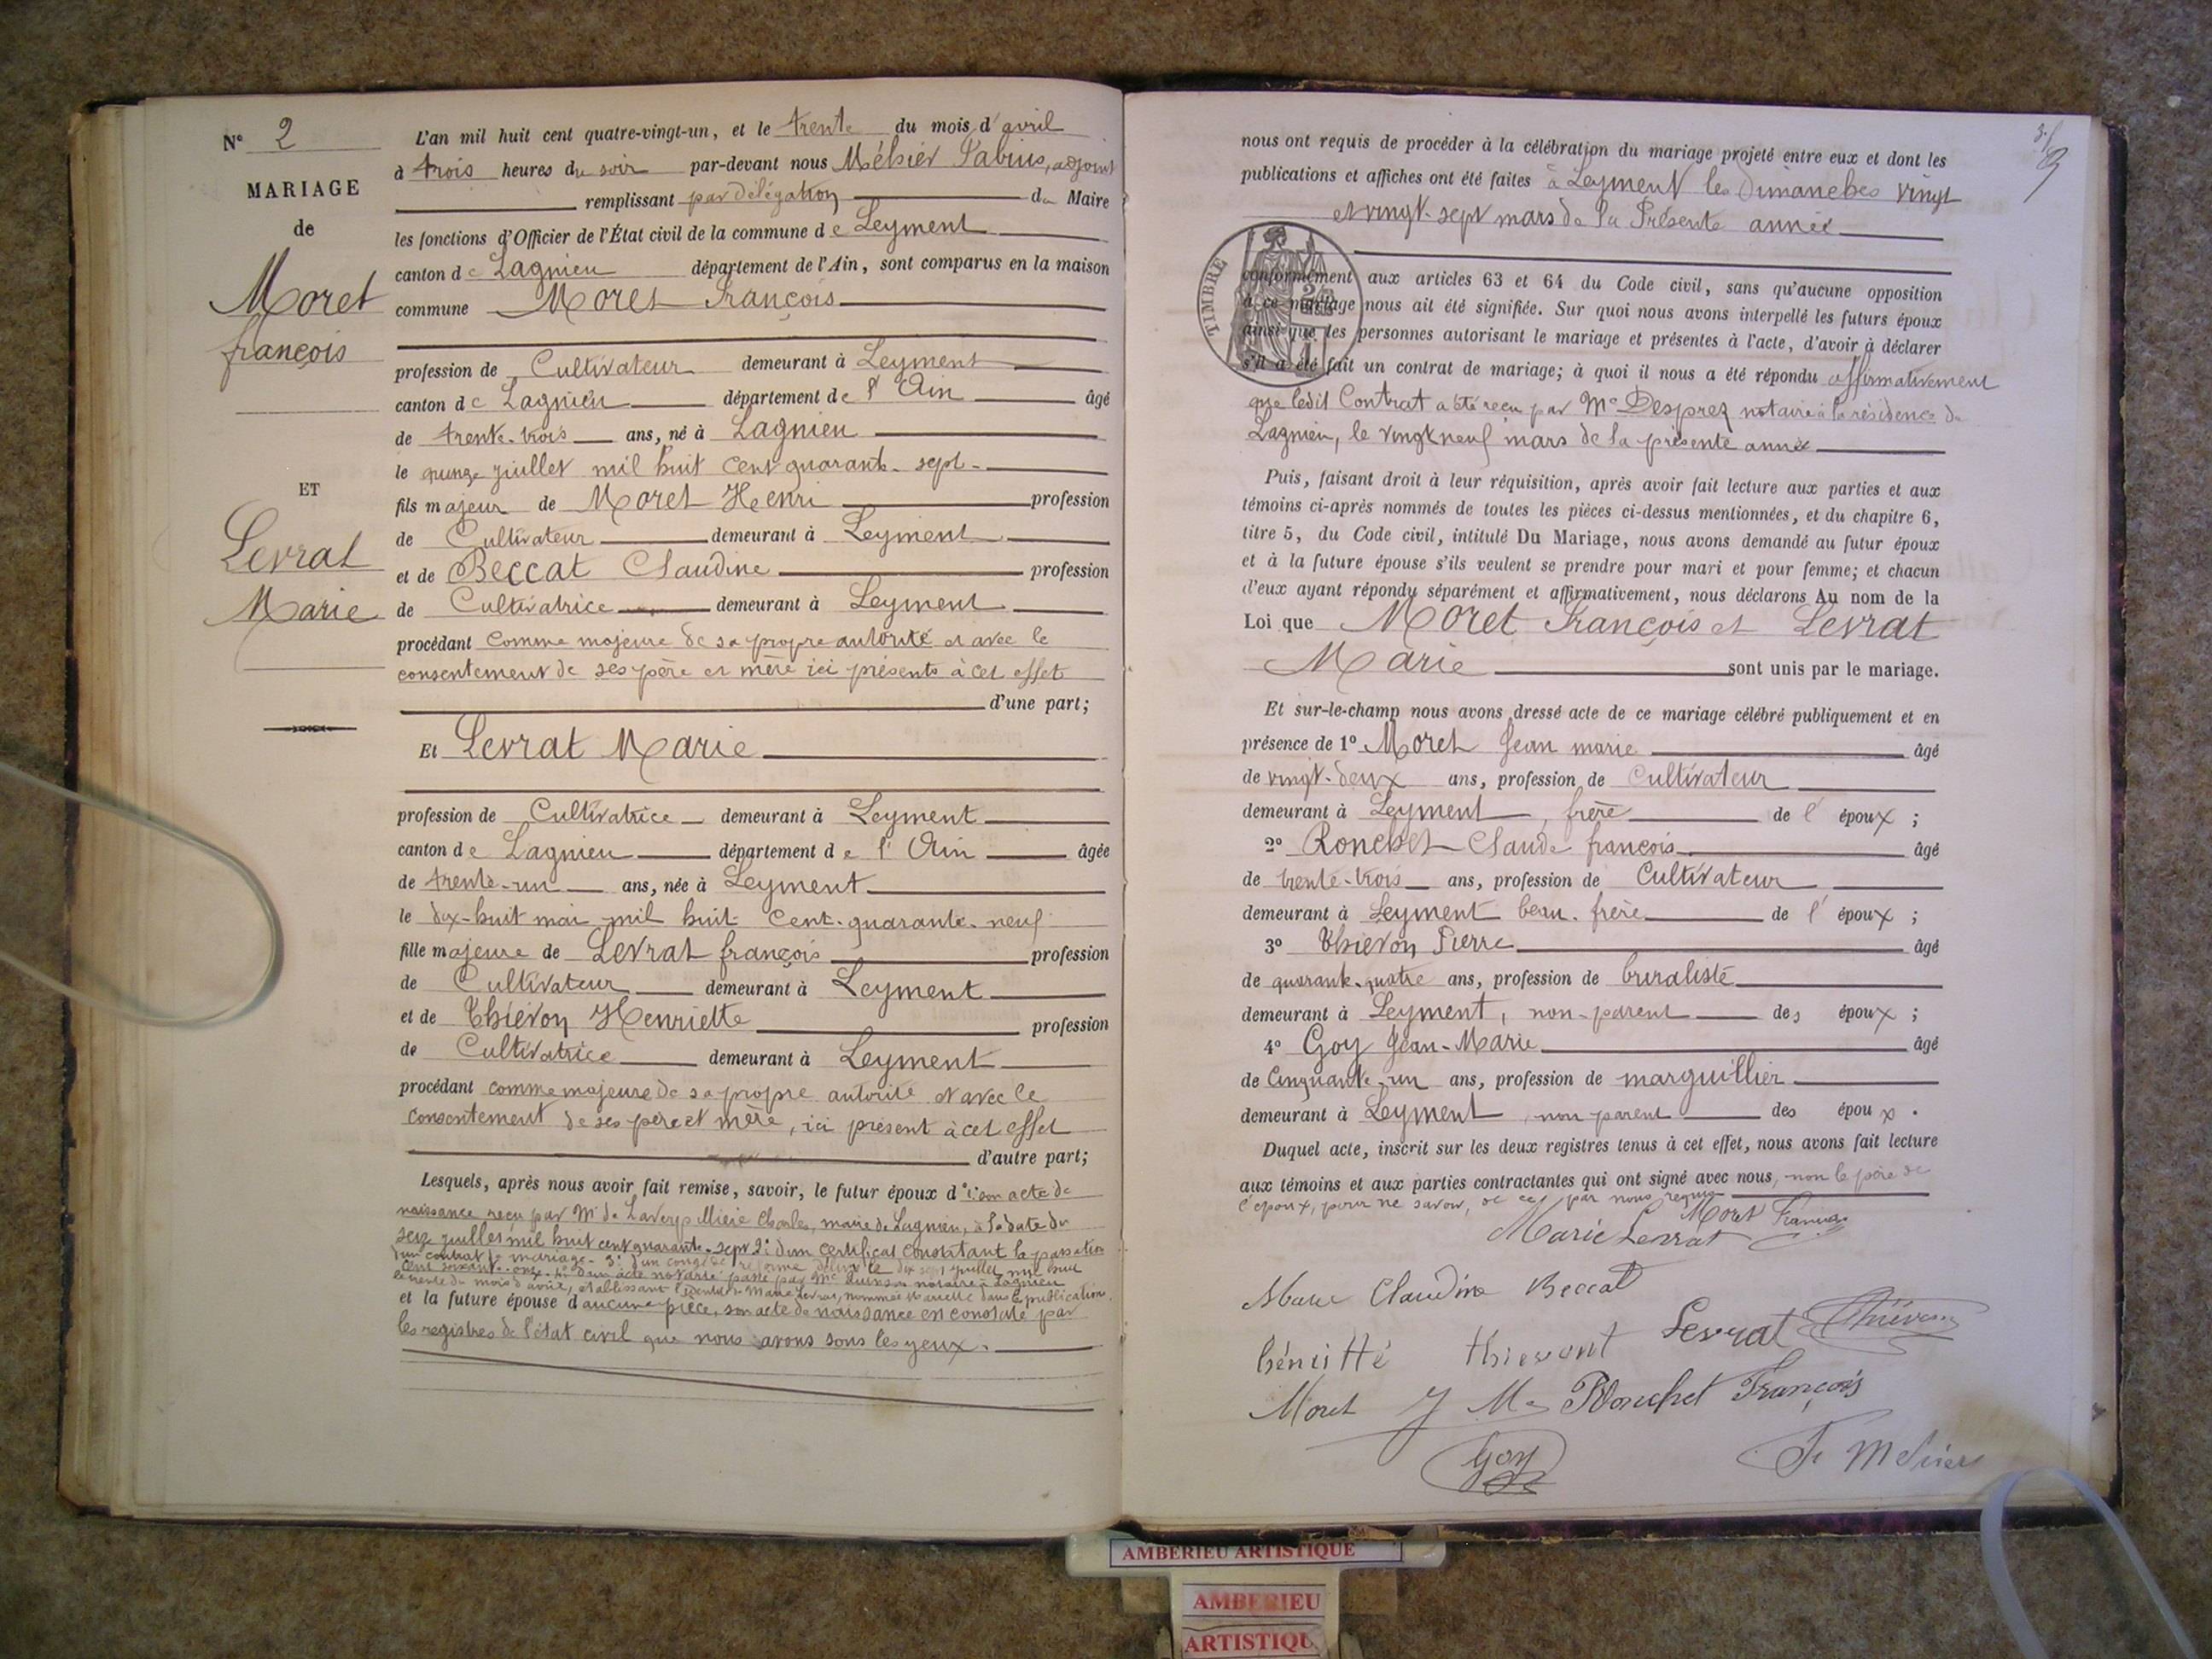 N° 2
MARIAGE
de
Moret
françois
ET
Levrat
Marie
L'an mil huit cent quatre-vingt-un, et le trente du mois d'avril
à trois heures du soir par-devant nous Méhier Fabius, adjoint
remplissant par délégation du Maire
les fonctions d'Officier de l'État civil de la commune de Leyment
canton de Lagnieu département de l'Ain, sont comparus en la maison
commune Moret François
profession de Cultivateur demeurant à Leyment
canton de Lagnieu département de l'Ain âgé
de trente-trois ans, né à Lagnieu
le quinze juillet mil huit cent quarante-sept
fils majeur de Moret Henri profession
de Cultivateur demeurant à Leyment
et de Beccat Claudine profession
de Cultivatrice demeurant à Leyment
procédant comme majeure de sa propre autorité et avec le
consentement de ses père et mère ici présents à cet effet
d'une part;
Et Levrat Marie
profession de Cultivatrice demeurant à Leyment
canton de Lagnieu département de l'Ain âgée
de trente-un ans, née à Leyment
le dix-huit mai mil huit cent-quarante-neuf
fille majeure de Levrat françois profession
de Cultivateur demeurant à Leyment
et de Thiévon Henriette profession
de Cultivatrice demeurant à Leyment
procédant comme majeure de sa propre autorité et avec le
consentement de ses père et mère, ici présent à cet effet
d'autre part;
Lesquels, après nous avoir fait remise, savoir, le futur époux d'1° son acte de
naissance reçu par Mr de Charles, maire de Lagnieu, à la date du
seize juillet mil huit cent quarante-sept 2° d'un certificat constatant la passation
d'un contrat de mariage - 3° d'un congé de réforme délivré le dix sept juillet mil huit
cent soixante-onze 4° d'un acte notarié passé par Me notaire à Lagnieu
le trente du mois d'avril, établissant Marie Levrat, nommée Mariette dans la publication
et la future épouse d'aucune pièce, son acte de naissance en constaté par
les registres de l'état civil que nous avons sous les yeux.
nous ont requis de procéder à la célébration du mariage projeté entre eux et dont les
publications et affiches ont été faites à Leyment les Dimanches vingt
et vingt-sept mars de la Présente année
TIMBRE
conformément aux articles 63 et 64 du Code civil, sans qu'aucune opposition
à ce mariage nous ait été signifiée. Sur quoi nous avons interpellé les futurs époux
ainsi que les personnes autorisant le mariage et présentes à l'acte, d'avoir à déclarer
s'il a été fait un contrat de mariage; à quoi il nous a été répondu affirmativement
que ledit Contrat a été reçu par Me Desprez notaire à la résidence de
Lagnieu, le vingt neuf mars de la présente année
Puis, faisant droit à leur réquisition, après avoir fait lecture aux parties et aux
témoins ci-après nommés de toutes les pièces ci-dessus mentionnées, et du chapitre 6,
titre 5, du Code civil, intitulé Du Mariage, nous avons demandé au futur époux
et à la future épouse s'ils veulent se prendre pour mari et pour femme; et chacun
d'eux ayant répondu séparément et affirmativement, nous déclarons Au nom de la
Loi que Moret François et Levrat
Marie sont unis par le mariage.
Et sur-le-champ nous avons dressé acte de ce mariage célébré publiquement et en
présence de 1° Moret Jean marie âgé
de vingt-deux ans, profession de Cultivateur
demeurant à Leyment, frère de l'époux;
2° Ronchet Claude françois âgé
de trente-trois ans, profession de Cultivateur
demeurant à Leyment beau-frère de l'époux;
3° Thiévon Pierre âgé
de quarante-quatre ans, profession de buraliste
demeurant à Leyment, non-parent des époux;
4° Goy Jean-Marie âgé
de Cinquante-un ans, profession de marguillier
demeurant à Leyment, non parent des époux.
Duquel acte, inscrit sur les deux registres tenus à cet effet, nous avons fait lecture
aux témoins et aux parties contractantes qui ont signé avec nous, non le père de
l'époux, pour ne savoir, de ce par nous requis
Moret François
Marie Levrat
Marie Claudine Beccat
Levrat Thiévon
hénritté thievont
Moret J M Ronchet François
Goy
F Mehier
AMBERIEU ARTISTIQUE
AMBERIEU
ARTISTIQU